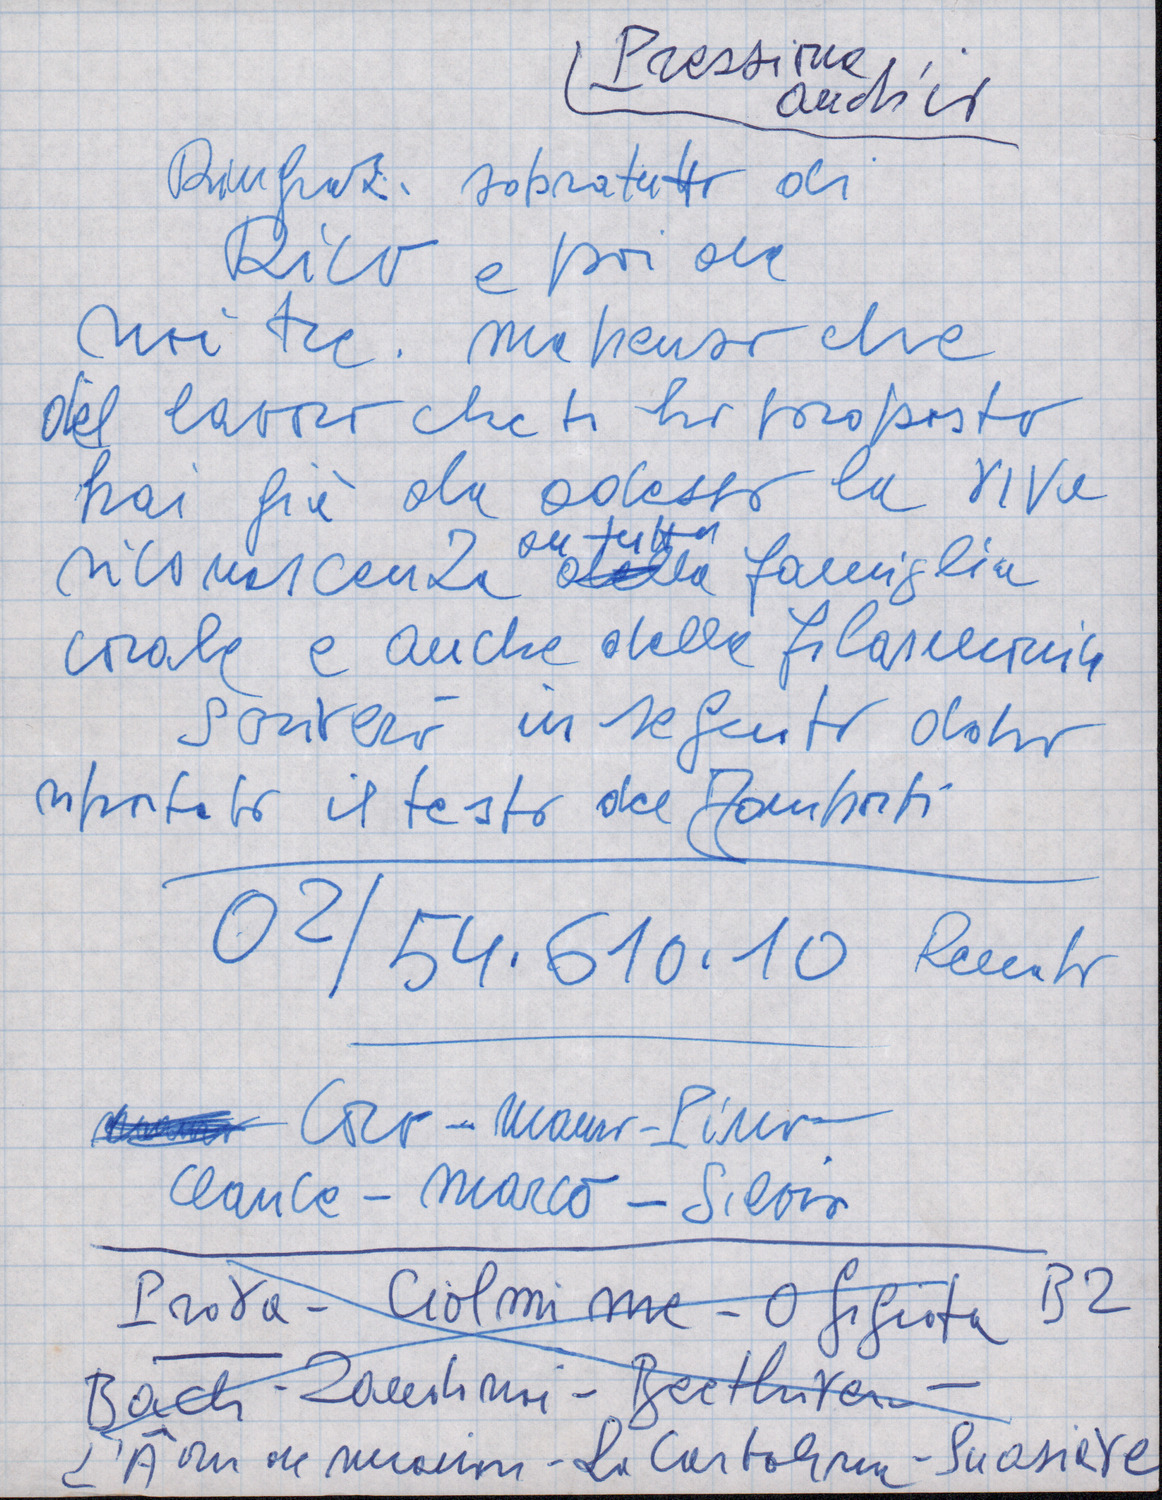 Pressione
anch'io
Ringraz. sopratutto di
Rico e poi da
noi tre. ma penso che
del lavoro che ti ho proposto
hai già da adesso la viva
riconoscenza da tutta famiglia
corale e anche della filarmonica
Scriverò in seguito dopo
riportato il testo del Zamponi
02/54.610.10 Renato
Coro - Mauro - Pino
Claude - Marco - Silvio
Prova - Ciolmi me - O Gigiota B2
Bach - - Beethoven -
L' - La Cartolina -